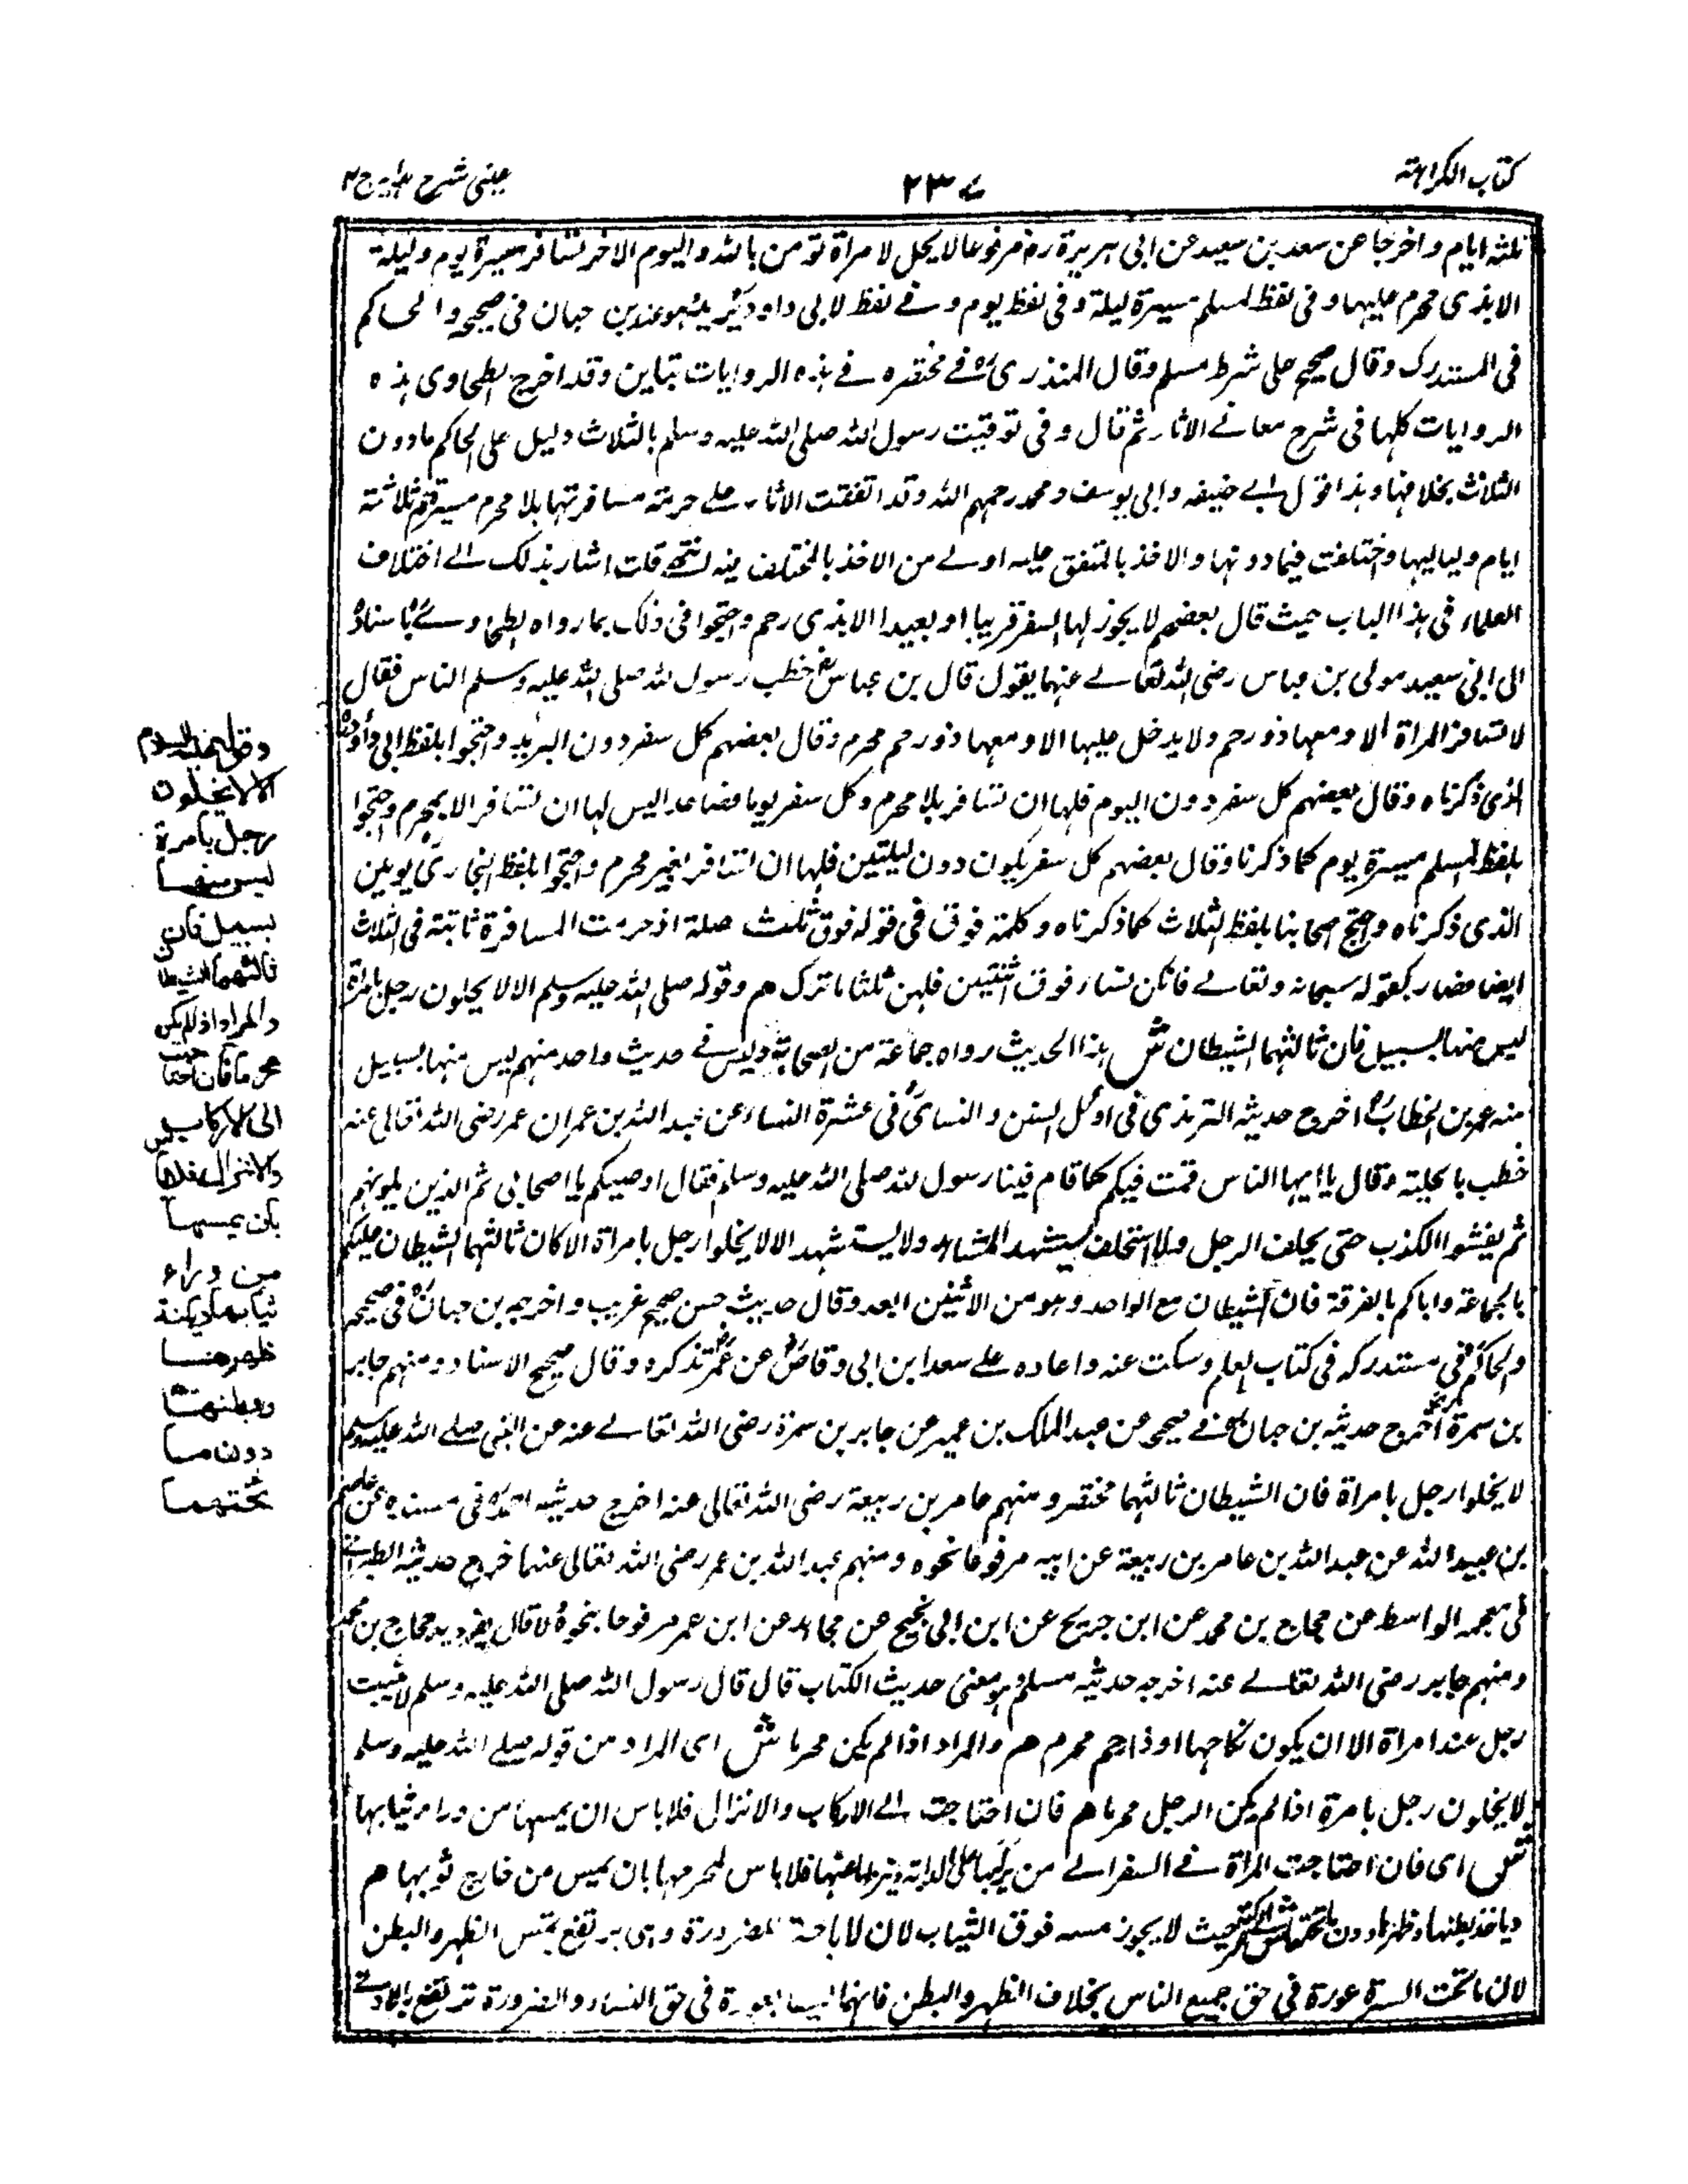 كتاب الكراهة
٢٣٧
عيني شرح هداية ج٤
ثلثة ايام واخرجا عن سعد بن سعيد عن ابى هريرة رض مرفوعا لا يحل لامراة تومن بالله واليوم الاخر تسافر مسيرة يوم وليلة
الا بذى محرم عليها وفى لفظ لمسلم مسيرة ليلة وفى لفظ يوم وفے لفظ لابى داود بريد وهو عند بن حبان فى صحيحه والحاكم
فى المستدرك وقال صحيح على شرط مسلم وقال المنذرى فے مختصره فے هذه الروايات تباين وقد اخرج الطحاوى هذه
الروايات كلها فى شرح معانے الاثار ثم قال وفى توقيت رسول الله صلى الله عليه وسلم بالثلاث دليل على الحاكم مادون
الثلاث بخلافها وهذا قول ابے حنيفه وابى يوسف ومحمد رحمهم الله وقد اتفقت الاثار علے حرمة مسافرتها بلا محرم مسيرة ثلاثة
ايام ولياليها واختلفت فيما دونها والاخذ بالمتفق عليه اولے من الاخذ بالمختلف فيه انتهے قلت اشار بذلك الے اختلاف
العلماء فى هذا الباب حيث قال بعضهم لا يجوز لها السفر قريبا او بعيدا الا بذى رحم واحتجوا فى ذلك بما رواه الطحاوے باسناده
الى ابى سعيد مولى بن عباس رضى الله تعالے عنهما يقول قال بن عباس خطب رسول الله صلى الله عليه وسلم الناس فقال
لا تسافر المراة الا ومعها ذو رحم ولا يدخل عليها الا ومعها ذو رحم محرم وقال بعضهم كل سفر دون البريد واحتجوا بلفظ ابى داود
الذى ذكرناه وقال بعضهم كل سفر دون اليوم فلها ان تسافر بلا محرم وكل سفر يوما فصاعدا ليس لها ان تسافر الا بمحرم واحتجوا
بلفظ لمسلم مسيرة يوم كما ذكرنا وقال بعضهم كل سفر يكون دون ليلتين فلها ان تسافر بغير محرم واحتجوا بلفظ البخارى يومين
الذى ذكرناه واحتج اصحابنا بلفظ الثلاث كما ذكرناه وكلمة فوق فى قوله فوق ثلث صلة اذ حرمت المسافرة ثابتة فى الثلاث
ايضا فصار كقوله سبحانه وتعالے فان كن نساء فوق اثنتين فلهن ثلثا ما ترك هم وقوله صلى الله عليه وسلم الا لا يخلون رجل بامراة
ليس منها بسبيل فان ثالثهما الشيطان ش هذا الحديث رواه جماعة من الصحابة وليس فے حديث واحد منهم ليس منها بسبيل
منه عمر بن الخطاب اخرج حديثه الترمذى فى اوئل السنن والنسائى فى عشرة النساء عن عبد الله بن عمران عمر رضى الله تعالى عنه
خطب بالجابية وقال يا ايها الناس قمت فيكم كما قام فينا رسول الله صلى الله عليه وسلم فقال اوصيكم يا اصحابى ثم الذين يلونهم
ثم يفشوا الكذب حتى يحلف الرجل ولا استحلف ليشهد الشاهد ولا يستشهد الا لا يخلوا رجل بامراة الا كان ثالثهما الشيطان عليكم
بالجماعة واياكم بالفرقة فان الشيطان مع الواحد وهو من الاثنين ابعد وقال حديث حسن صحيح غريب واخرجه بن حبان فى صحيحه
والحاكم فى مستدركه فى كتاب العلم وسكت عنه واعاده علے سعد ابن ابى وقاص عن عمر تذكره وقال صحيح الاسناد ومنهم جابر
بن سمرة اخرج حديثه بن حبان فے صحيحه عن عبد الملك بن عمير عن جابر بن سمرة رضى الله تعالے عنه عن النبى صلے الله عليه وسلم
لا يخلوا رجل بامراة فان الشيطان ثالثهما مختصر ومنهم عامر بن ربيعة رضى الله تعالى عنه اخرج حديثه احمد فى مسنده عن عاصم
بن عبيد الله عن عبد الله بن عامر بن ربيعة عن ابيه مرفوعا نحوه ومنهم عبد الله بن عمر رضى الله تعالى عنهما خرج حديثه الطبرانے
فى معجمه الواسط عن حجاج بن محمد عن ابن جريج عن ابن ابى نجيح عن مجاهد عن ابن عمر مرفوعا بنحوه لا قال يفرد به حجاج بن محمد
ومنهم جابر رضى الله تعالے عنه اخرجه حديثه مسلم وهو معنى حديث الكتاب قال قال رسول الله صلى الله عليه وسلم لا يبيت
رجل عند امراة الا ان يكون نكاحها او ذا رحم محرم هم والمراد اذا لم يكن محرما ش اى المراد من قوله صلے الله عليه وسلم
لا يخلون رجل بامرة اذا لم يكن الرجل محرما هم فان احتاجت الے الاركاب والانزال فلا باس ان يمسها من وراء ثيابها
ش اى فان احتاجت المراة فے السفر الے من يركبها على الدابة وينزلها عنها فلا باس لمحرمها بان يمس من خارج ثوبها هم
وياخذ بطنها وظهرها دون ما تحتها ش حيث لا يجوز مسه فوق الثياب لان لاباحة للضرورة وهى يرتفع بمس الظهر والبطن
لان ما تحت السرة عورة فى حق جميع الناس بخلاف الظهر والبطن فانهما ليسا بعورة فى حق النساء والضرورة ترتفع بالادنے
وقوله عليه السلام
الا لا يخلون
رجل بامرة
ليس منها
بسبيل فان
ثالثهما الشيطان
والمراد اذا لم يكن
محرما فان احتاجت
الى الاركاب
والانزال فلا باس
بان يمسها
من وراء
ثيابها وياخذ
ظهرها
وبطنها
دون ما
تحتهما